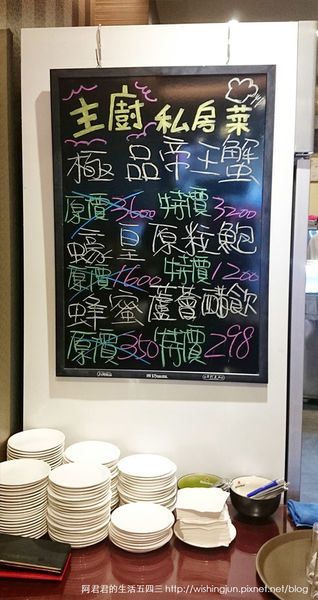 主廚私房菜
極品帝王蟹
原價3600 特價3200
蠔皇原粒鮑
原價1600 特價1200
蜂蜜蘆薈醋飲
原價350 特價298
阿君君的生活五四三 http://wishingjun.pixnet.net/blog